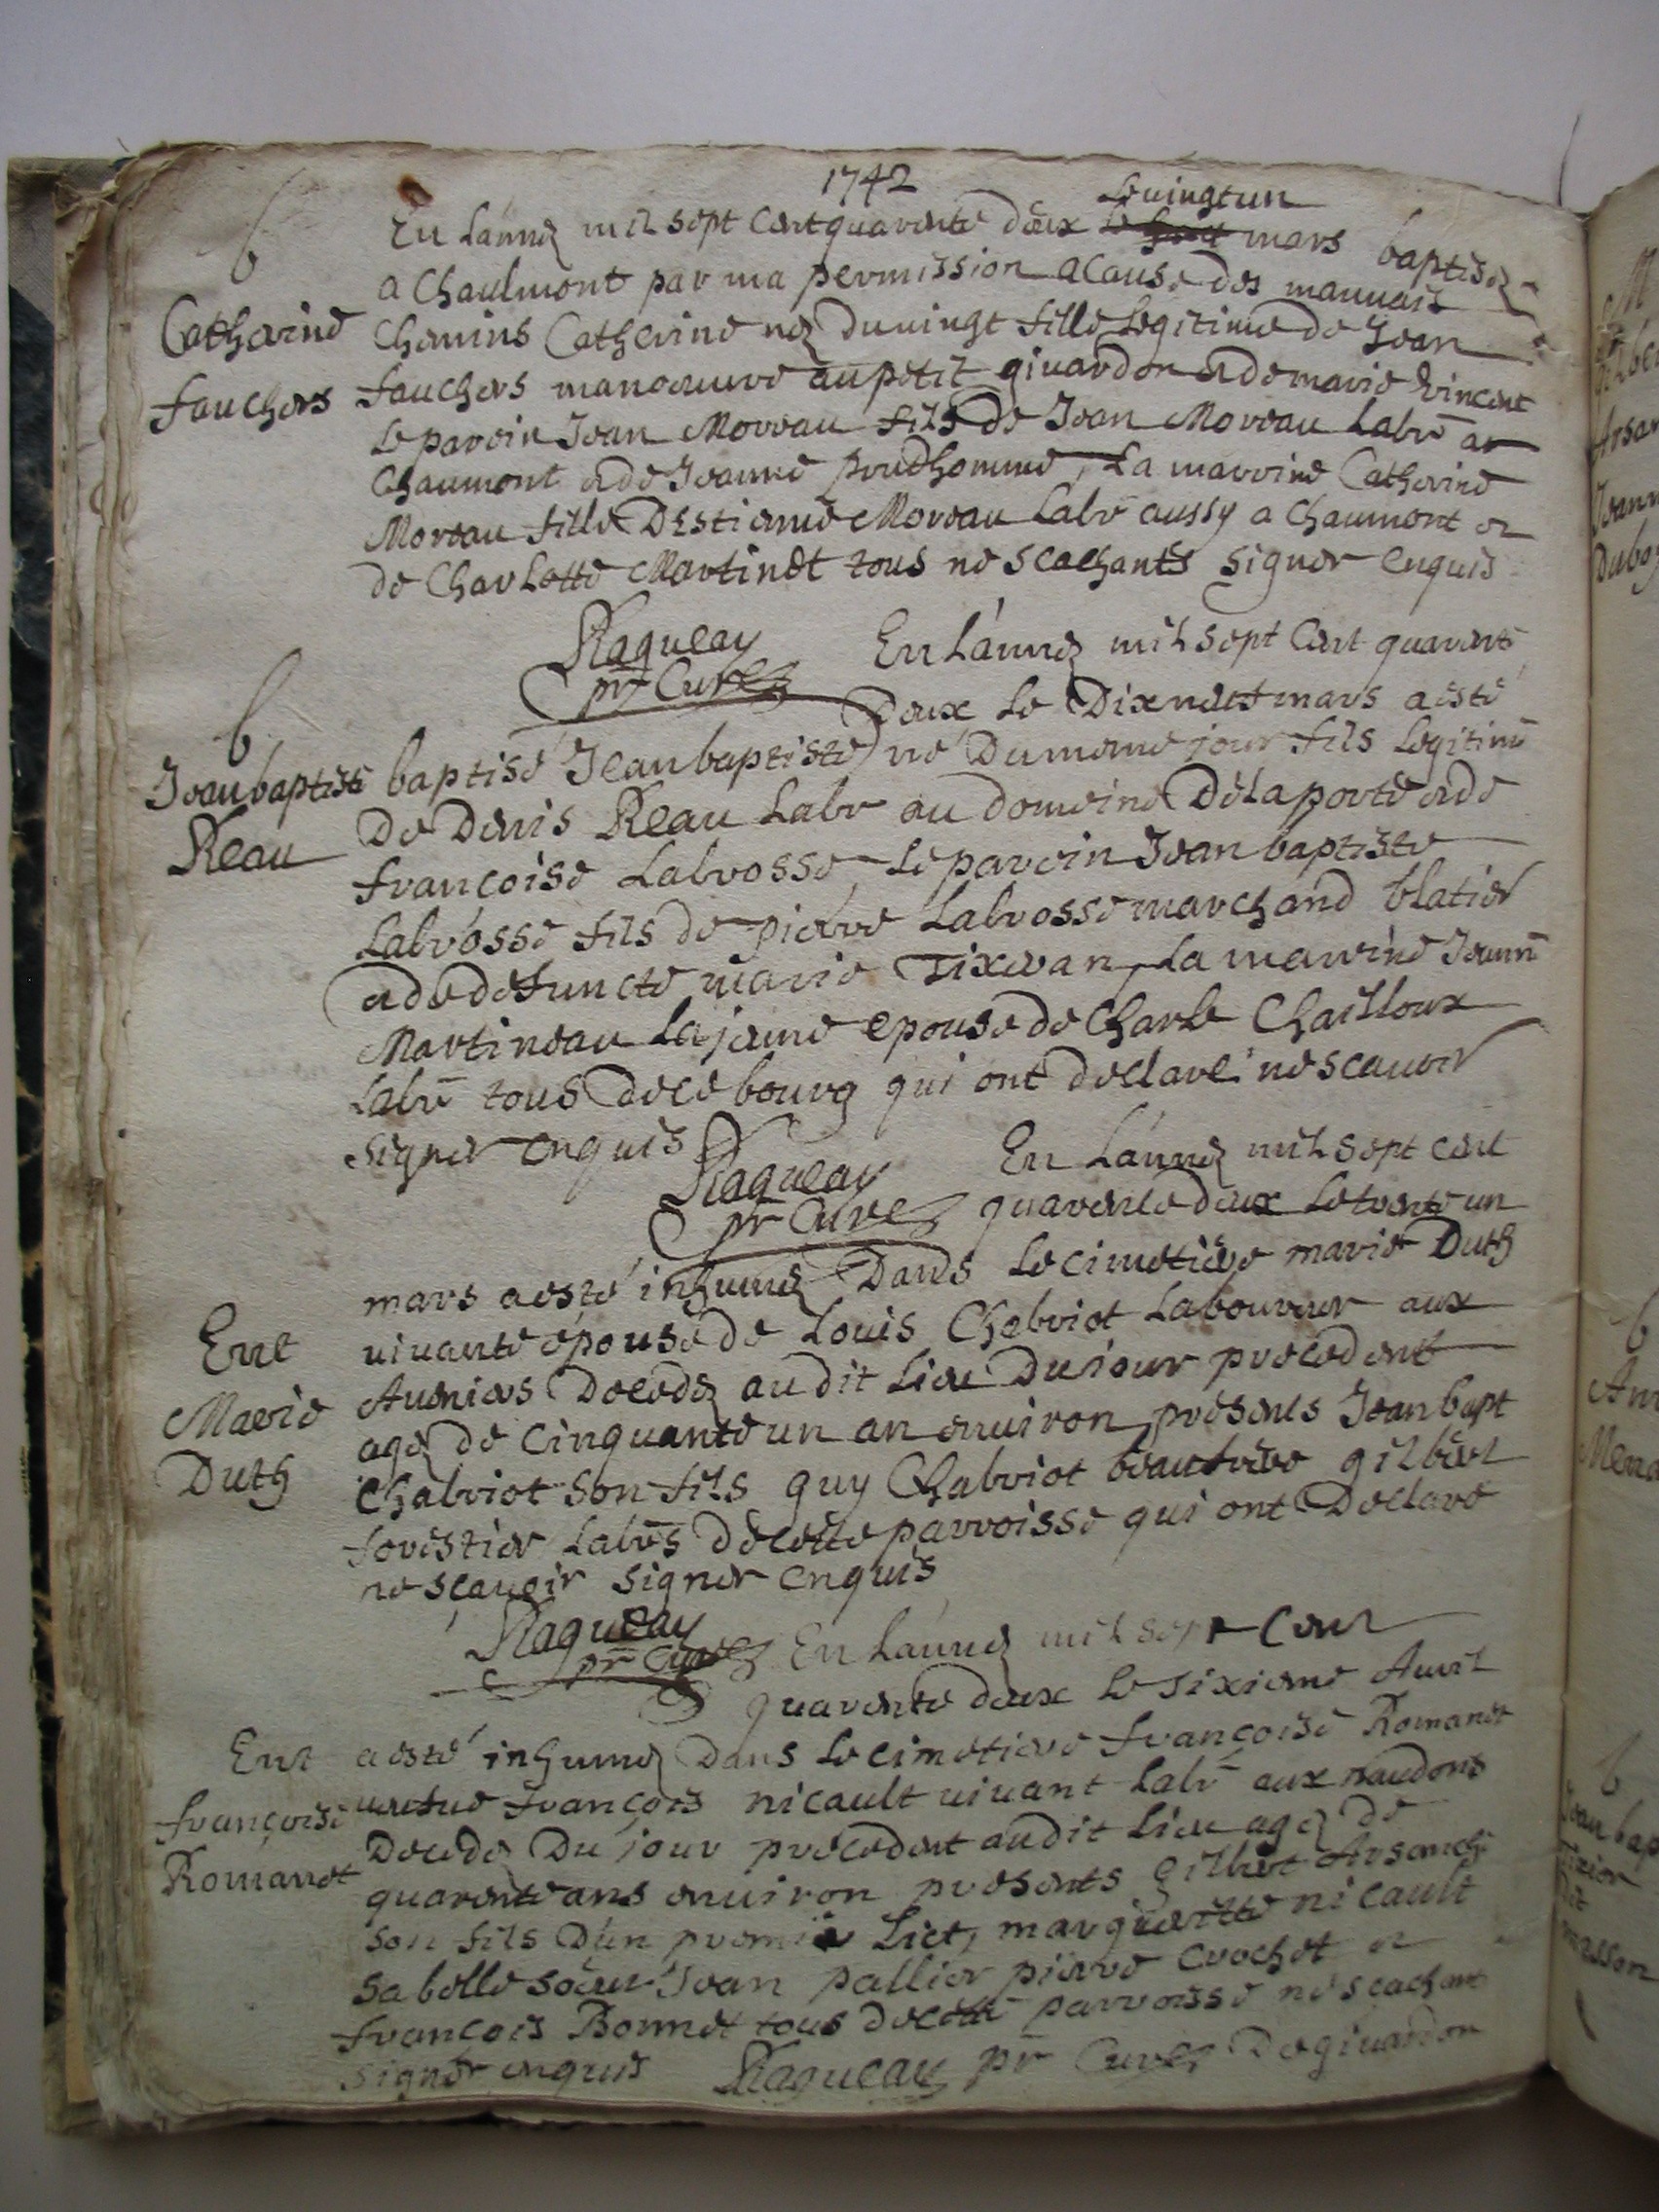 1742
le uingt un
En Lánneé mil sept Cent quarente deux le mars baptiseé
a Chaulmont par ma permission a Cause des mauuais
chemins Catherine neé du uingt fille Legitime de Jean
fauchers manoeuure au petit giuardon et de marie Vincent
Le parein Jean Moreau fils de Jean Moreau Labr̄ a
Chaumont et de Jeanne prudhomme, La mareine Catherine
Moreau fille Destienne Moreau Labr̄ aussy a Chaumont et
de Charlotte Martinet tous ne scachants signer enquis
b
Catherine
fauchers
Raqueau
pr̄ Curé
En Lánneé mil sept Cent quarente
deux Le Dixneuf mars a esté
baptisé Jean baptiste né du meme jour fils Legitime
De Denis Reau Labr au domeine Delaporte et de
françoise Labrosse, Le parein Jean baptiste
Labrosse fils de pierre Labrosse marchand blatier
et de defuncte marie Tixeran, La mareine Jeann̄
Martineau La jeune epouse de Charle Chailloux
Labr̄ tous de ce bourg qui ont declaré ne scauoir
signer enquis
b
Jean baptiste
Reau
Raqueau
pr̄ Curé
En Lánneé mil sept cent
quarente deux Le trente un
mars a esté inhumeé Dans Le cimetiere marie Duth
uiuante épouse de Louis Chabriot Laboureur aux
Aueniers Decedeé au dit Lieu Du iour precedent
ageé de cinquante un an enuiron, presents Jean bapt
Chabriot son fils guy Chabriot beaufrere gilbert
forestier Labr̄s de cette parroisse qui ont Declaré
ne scauoir signer enquis
Ent
Marie
Duth
Raqueau
pr̄ Curé
En Lánneé mil sept Cent
quarente deux Le sixieme Auril
a esté inhumeé Dans Le cimetiere françoise Romanet
ueufue françois nicault uiuant Labr̄ aux naudons
Decedeé Du jour precedent audit Lieu ageé de
quarente ans enuiron presents gilbert
son fils D'un premier Lict, marguerite nicault
sa belle soeur Jean pallier pierre Crochet et
françois Bonnet tous de cette parroisse ne scachant
signer enquis Raqueau pr̄ Curé De giuardon
Ent
françoise
Romanet